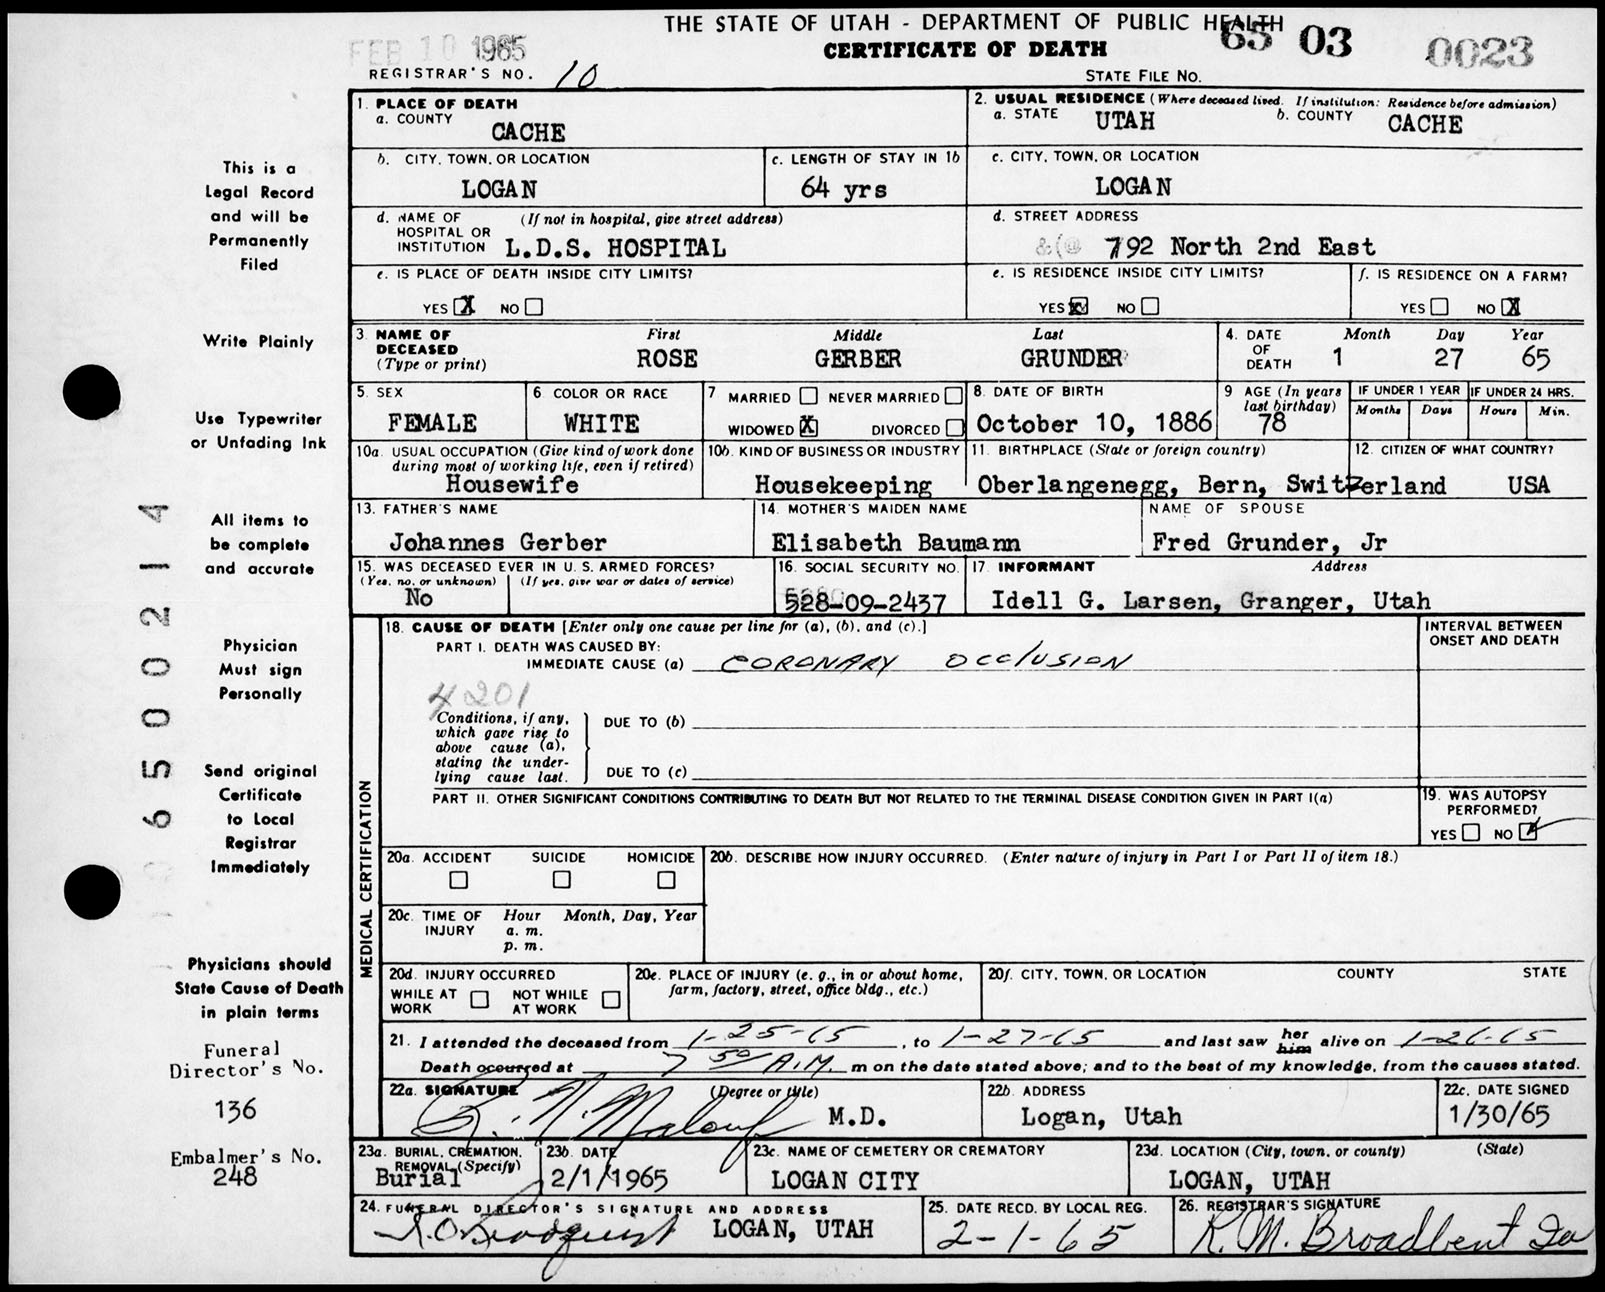 THE STATE OF UTAH - DEPARTMENT OF PUBLIC HEALTH
FEB 10 1965
CERTIFICATE OF DEATH
65 03 0023
REGISTRAR'S NO. 10
STATE FILE NO.
This is a
Legal Record
and will be
Permanently
Filed
Write Plainly
Use Typewriter
or Unfading Ink
All items to
be complete
and accurate
Physician
Must sign
Personally
Send original
Certificate
to Local
Registrar
Immediately
Physicians should
State Cause of Death
in plain terms
Funeral
Director's No.
136
Embalmer's No.
248
6500214
1. PLACE OF DEATH
a. COUNTY
CACHE
2. USUAL RESIDENCE (Where deceased lived. If institution: Residence before admission)
a. STATE UTAH b. COUNTY CACHE
b. CITY, TOWN, OR LOCATION
LOGAN
c. LENGTH OF STAY IN 1b
64 yrs
c. CITY, TOWN, OR LOCATION
LOGAN
d. NAME OF HOSPITAL OR INSTITUTION (If not in hospital, give street address)
L.D.S. HOSPITAL
d. STREET ADDRESS
792 North 2nd East
e. IS PLACE OF DEATH INSIDE CITY LIMITS?
YES X NO
e. IS RESIDENCE INSIDE CITY LIMITS?
YES X NO
f. IS RESIDENCE ON A FARM?
YES NO X
3. NAME OF DECEASED (Type or print)
First Middle Last
ROSE GERBER GRUNDER
4. DATE OF DEATH
Month Day Year
1 27 65
5. SEX
FEMALE
6. COLOR OR RACE
WHITE
7 MARRIED NEVER MARRIED
WIDOWED X DIVORCED
8. DATE OF BIRTH
October 10, 1886
9 AGE (In years last birthday)
78
IF UNDER 1 YEAR
Months Days
IF UNDER 24 HRS.
Hours Min.
10a. USUAL OCCUPATION (Give kind of work done during most of working life, even if retired)
Housewife
10b. KIND OF BUSINESS OR INDUSTRY
Housekeeping
11. BIRTHPLACE (State or foreign country)
Oberlangenegg, Bern, Switzerland
12. CITIZEN OF WHAT COUNTRY?
USA
13. FATHER'S NAME
Johannes Gerber
14. MOTHER'S MAIDEN NAME
Elisabeth Baumann
NAME OF SPOUSE
Fred Grunder, Jr
15. WAS DECEASED EVER IN U. S. ARMED FORCES?
(Yes, no, or unknown) (If yes, give war or dates of service)
No
16. SOCIAL SECURITY NO.
528-09-2437
17. INFORMANT Address
Idell G. Larsen, Granger, Utah
MEDICAL CERTIFICATION
18. CAUSE OF DEATH [Enter only one cause per line for (a), (b), and (c).]
INTERVAL BETWEEN ONSET AND DEATH
PART I. DEATH WAS CAUSED BY:
IMMEDIATE CAUSE (a) CORONARY OCCLUSION
4201
Conditions, if any, which gave rise to above cause (a), stating the underlying cause last.
DUE TO (b)
DUE TO (c)
PART II. OTHER SIGNIFICANT CONDITIONS CONTRIBUTING TO DEATH BUT NOT RELATED TO THE TERMINAL DISEASE CONDITION GIVEN IN PART I(a)
19. WAS AUTOPSY PERFORMED?
YES NO
20a. ACCIDENT SUICIDE HOMICIDE
20b. DESCRIBE HOW INJURY OCCURRED. (Enter nature of injury in Part I or Part II of item 18.)
20c. TIME OF INJURY
Hour Month, Day, Year
a. m.
p. m.
20d. INJURY OCCURRED
WHILE AT WORK NOT WHILE AT WORK
20e. PLACE OF INJURY (e. g., in or about home, farm, factory, street, office bldg., etc.)
20f. CITY, TOWN, OR LOCATION COUNTY STATE
21. I attended the deceased from 1-25-65, to 1-27-65 and last saw her him alive on 1-26-65
Death occurred at 7 50 A.M. m on the date stated above; and to the best of my knowledge, from the causes stated.
22a. SIGNATURE (Degree or title)
R. N. Malouf M.D.
22b. ADDRESS
Logan, Utah
22c. DATE SIGNED
1/30/65
23a. BURIAL, CREMATION, REMOVAL (Specify)
Burial
23b. DATE
2/1/1965
23c. NAME OF CEMETERY OR CREMATORY
LOGAN CITY
23d. LOCATION (City, town, or county) (State)
LOGAN, UTAH
24. FUNERAL DIRECTOR'S SIGNATURE AND ADDRESS
LOGAN, UTAH
25. DATE RECD. BY LOCAL REG.
2-1-65
26. REGISTRAR'S SIGNATURE
R. M. Broadbent